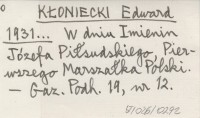 KŁONIECKI Edward
1931... W dniu Imienin
Józefa Piłsudskiego Pier-
wszego Marszałka Polski.
— Gaz. Podh. 19, nr 12.